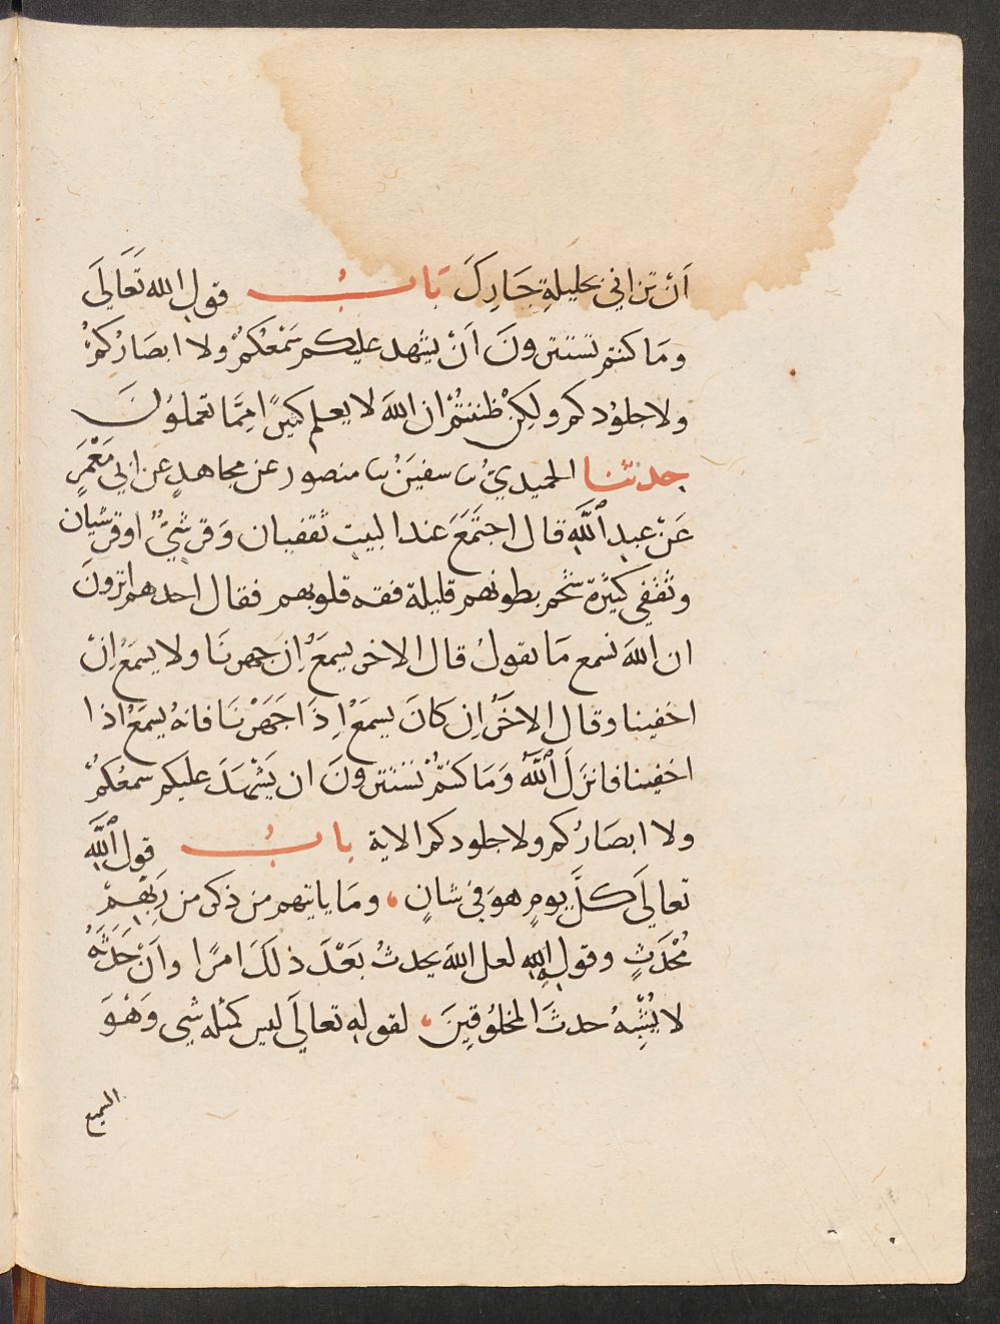 اَنْ تزاني بحليلةِ جَارِكَ بَابُ قولِ الله تَعَالَى
ومَا كنتم تستترونَ اَنْ يشهد عليكم سَمْعُكُمْ ولا ابصَارُكُمْ
ولا جلوُدكم ولكِنْ ظننتُمْ ان اللهَ لا يعلم كثيرًا مِمَّا تعملوُنَ
حدثنا الحميديُ ثنا سفيَنُ ثنا منصور عن مجاهدٍ عن ابي مَعْمَرٍ
عَنْ عبدِ اللَّهِ قال اجتَمَعَ عند البيت ثقفيان وَقرشيٌّ اوقرشيان
وثقفي كثيرة شحْم بطونهم قليلة فقه قلوبهم فقال احدهم اترونَ
ان اللهَ يسمع مَا نقولُ قال الاخر يسمَعُ اِن جهرنَا ولا يسمَعُ اِنْ
اخفينا وقال الاخَرُ اِن كانَ يسمَعُ اِذَا جَهَرْنَا فانهُ يسمَعُ اذا
اخفينا فانزَلَ اللَّهُ وَمَا كنتُمْ تستترونَ ان يَشْهَدَ عليكم سمعُكُمْ
ولا ابصَارُكم ولا جلودكم الاية بابُ قولِ اللَّهِ
تعالَى كلَّ يومٍ هوَ في شانٍ ، ومَا ياتيهم من ذكر من رَبِّهِمْ
مُحْدَثٍ وقولِهِ لعل اللهَ يحدثُ بَعْدَ ذلكَ امرًا واَنْ حَدَثَهُ
لا يُشْبِهُ حدثَ المخلوُقِينَ ، لقولهِ تعالَى ليس كمثله شي وَهْوَ
السميع